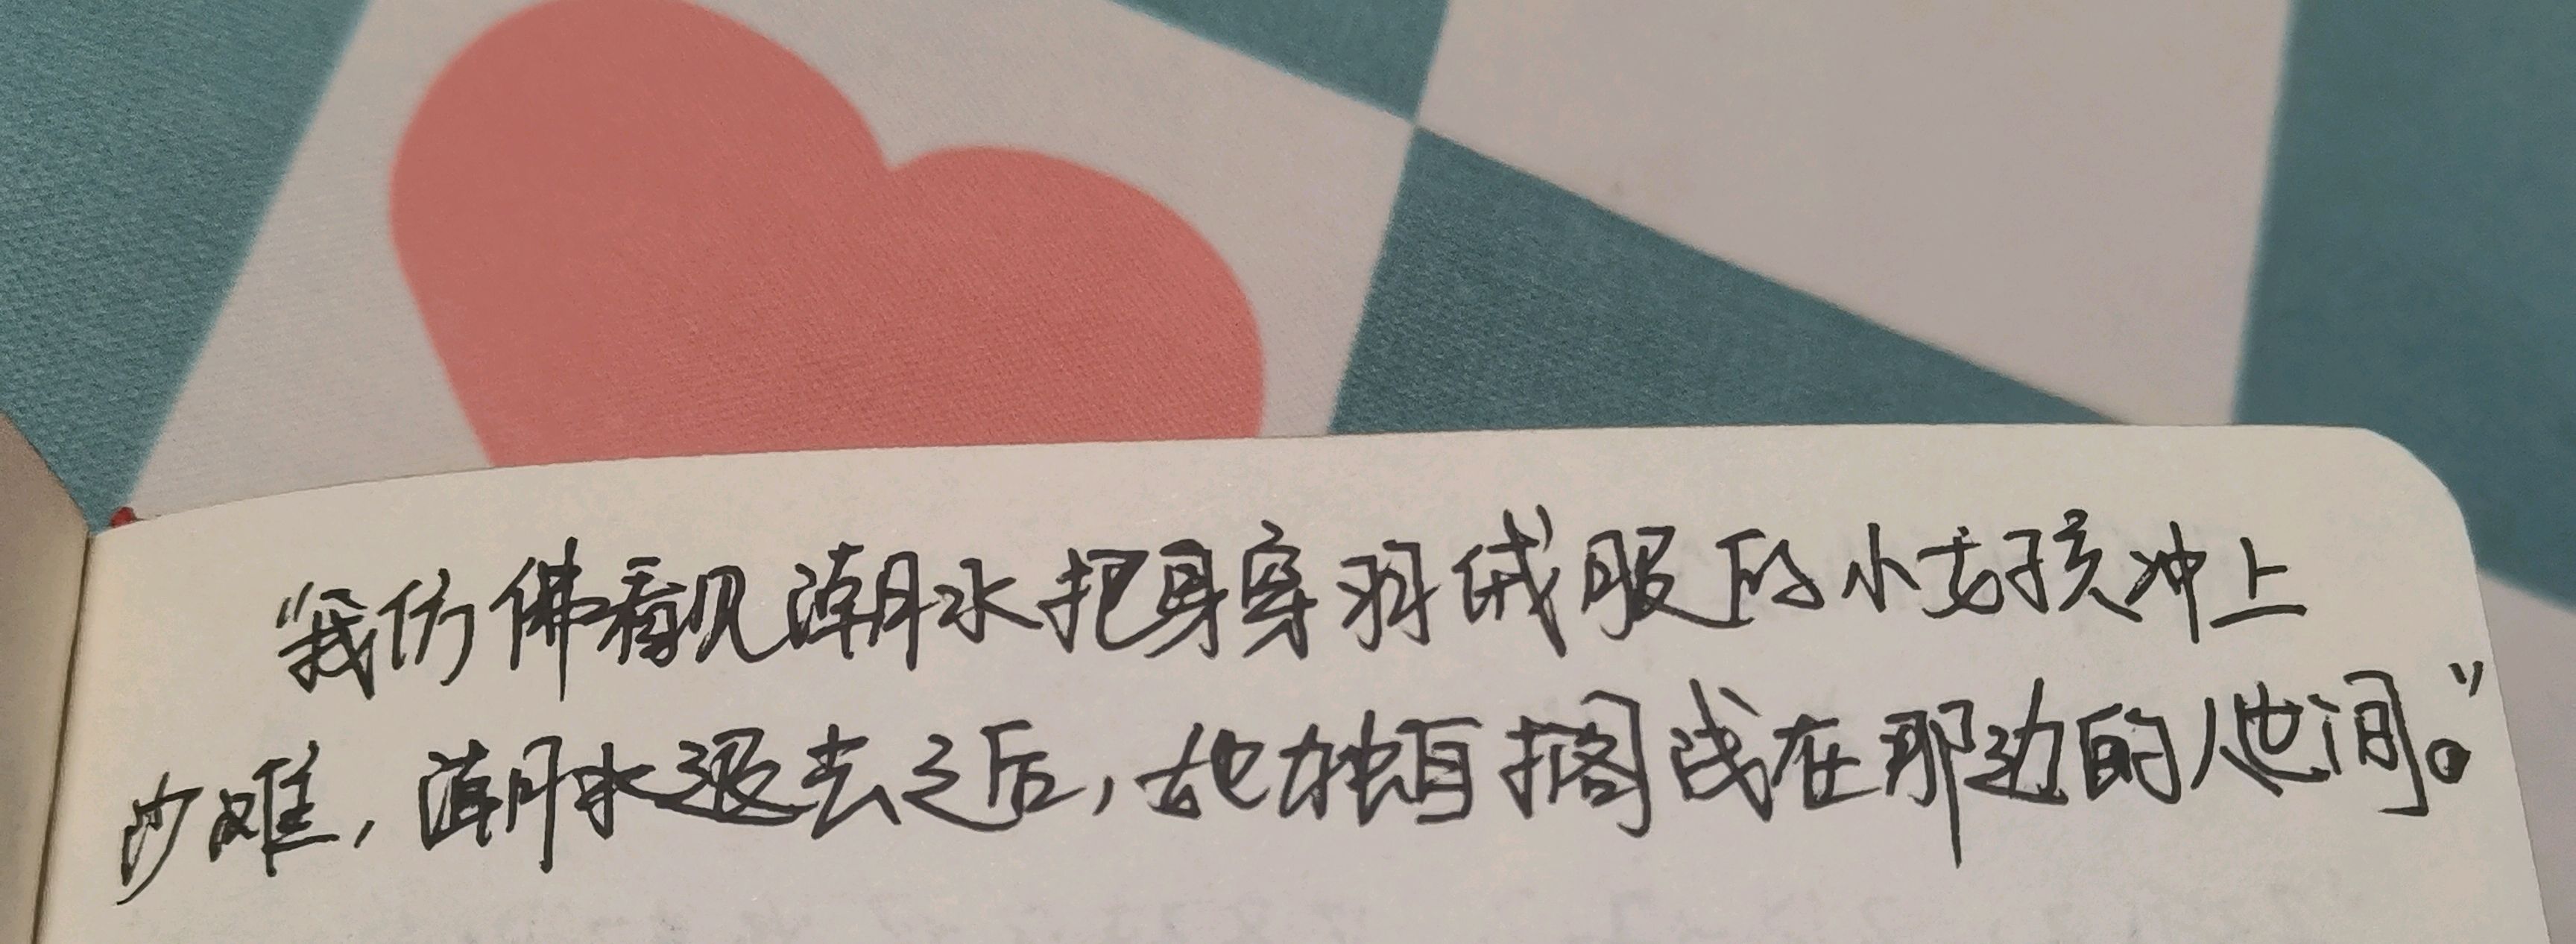 “我仿佛看见潮水把身穿羽绒服的小女孩冲上
沙滩，潮水退去之后，她独自搁浅在那边的人世间。”